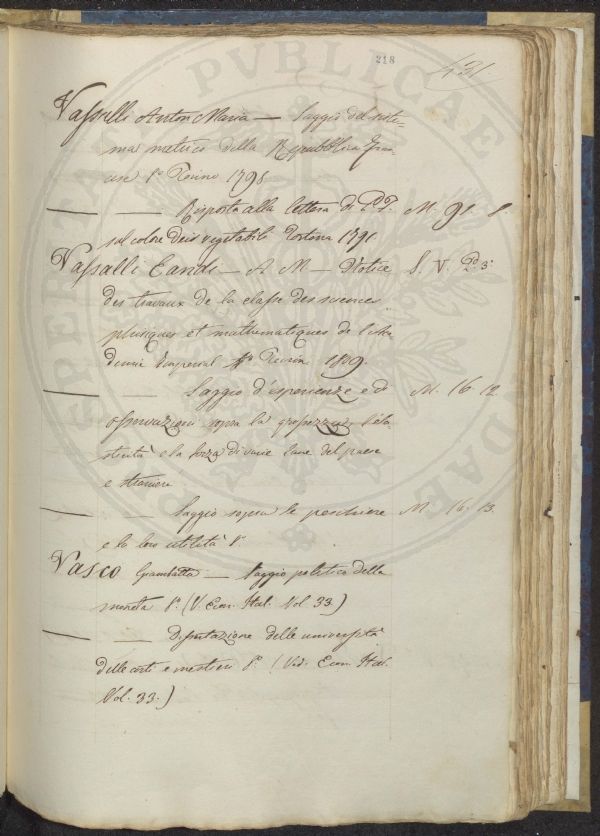 218
431.
Vassalli Anton Maria — Saggio del siste-
ma metrico della Repubblica fran-
cese 8° Torino 1798
— — Risposta alla lettera di M. 91. 8.
sul colore dei vegetabili Tortona 1791.
Vassalli Eandi — A M — Notice S. V. 3:
des travaux de la classe des sciences
phisiques et mathematiques de l'Aca-
demie Imperial Turin 1809.
— — Saggio d'esperienze ed M. 16. 12.
osservazioni sopra la grossezza, l'ela-
sticità e la forza di varie lane del paese
e straniere
— — Saggio sopra le peschiere M. 16. 13.
e la loro utilità 8°.
Vasco Giambatta — Saggio politico della
moneta 8°. (V. Econ. Ital. Vol 33.)
— — Disputazione delle università
delle arti e mestieri 8°. (Vid. Econ. Ital.
Vol. 33.)